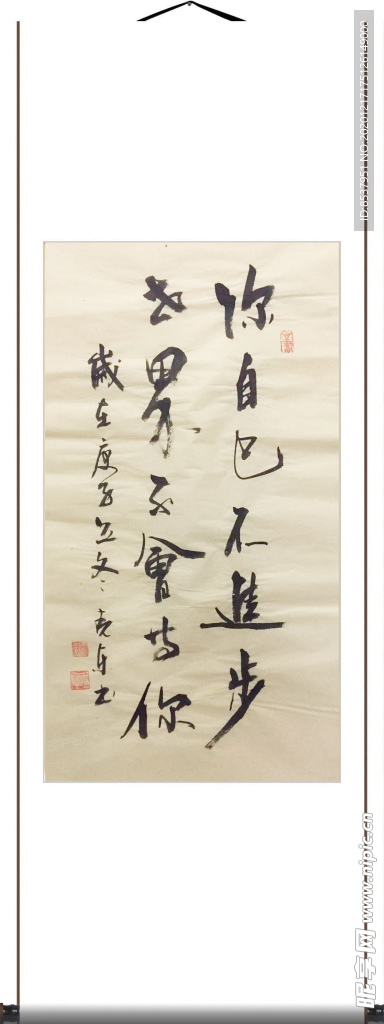 你自己不進步
世界不會等你
歲在庚子立冬
ID:8537951 NO:20201217175126149000
昵享网 www.nipic.cn